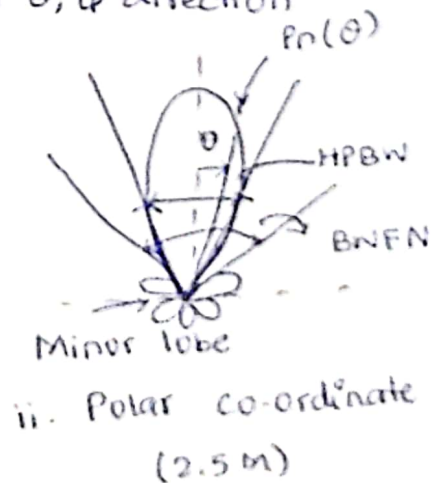 θ, φ direction
Pn(θ)
θ
HPBW
BNFN
Minor lobe
ii. Polar co-ordinate
(2.5 m)